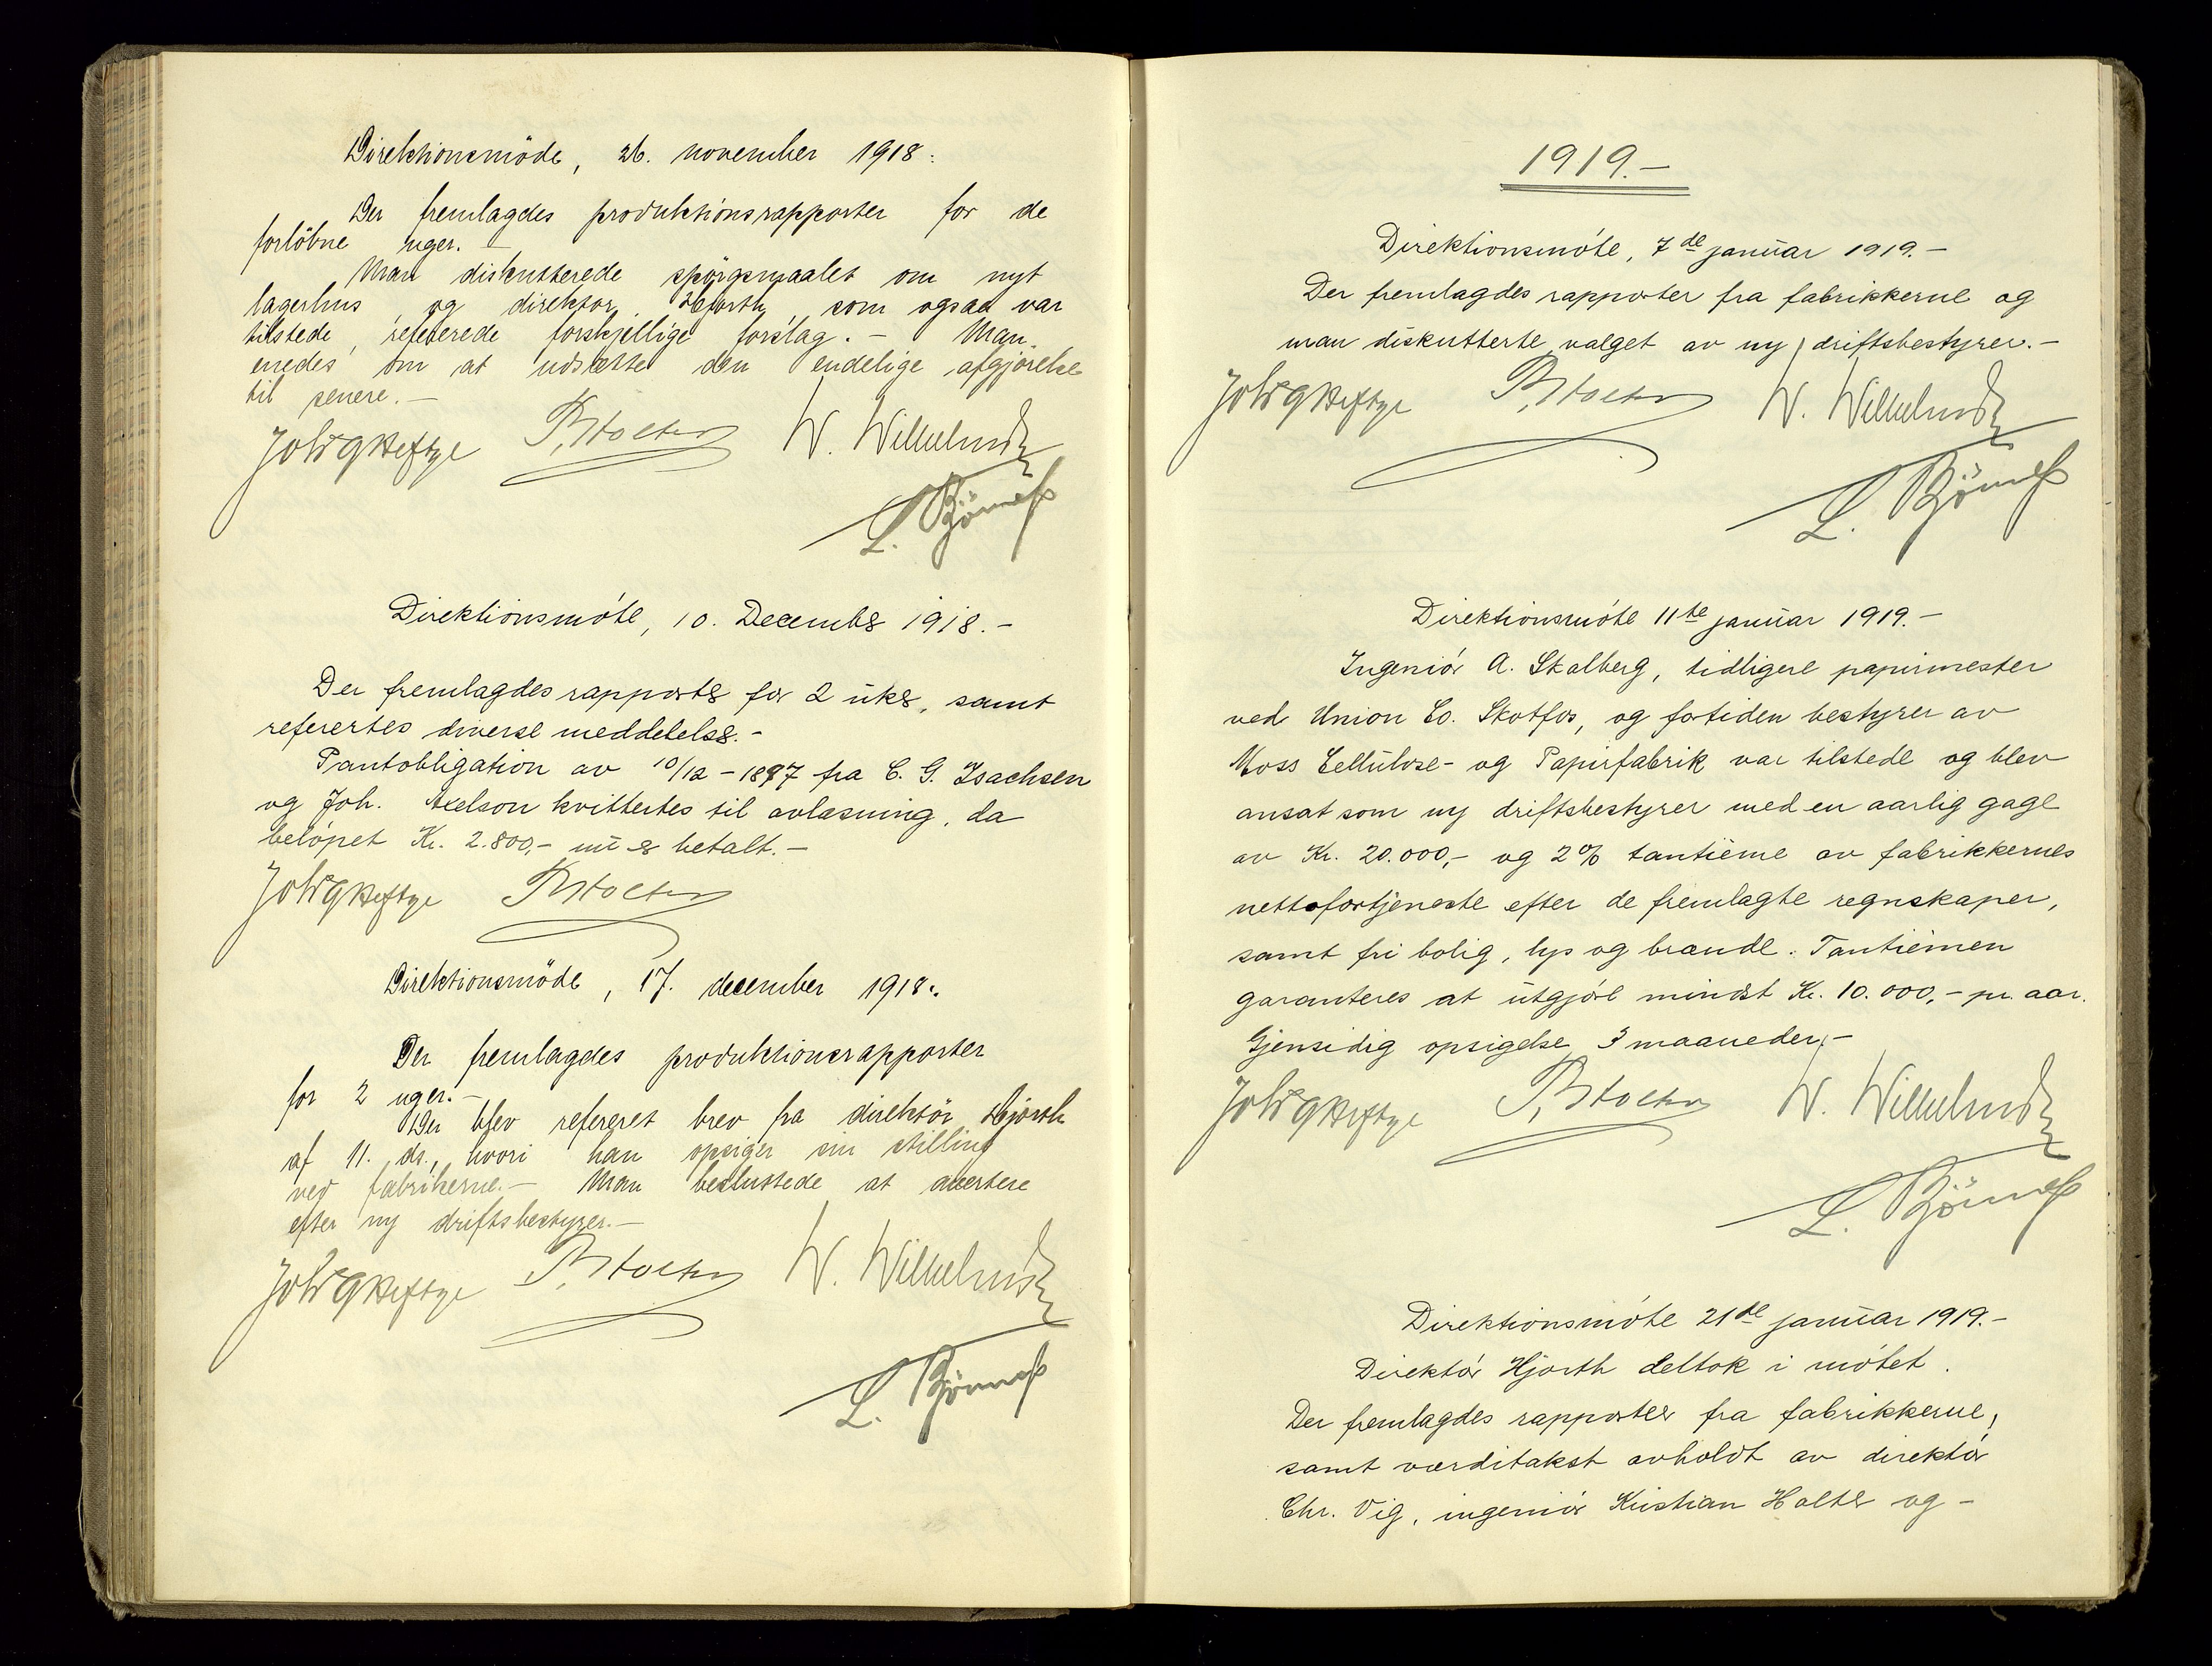 Direktionsmöde, 26. november 1918.
Der fremlagdes produktionsrapporter for de
forlöbne uger. —
Man diskutterede spörgsmaalet om nyt
lagerhus og direktor Hjorth, som ogsaa var
tilstede, refererede forskjellige forslag. — Man
enedes om at udsætte den endelige afgjörelse
til senere. —
Joh H G Heftye P. Holter W. Wilhelmsen
L. Björness
Direktionsmöte, 10. December 1918. —
Der fremlagdes rapporter for 2 uker, samt
referertes diverse meddelelser. —
Pantobligation av 10/12 - 1897 fra C. G. Isachsen
og Joh. Axelson kvittertes til avlæsning, da
belöpet Kr. 2.800,- nu er betalt. —
Joh H G Heftye P. Holter
Direktionsmöde, 17. december 1918.
Der fremlagdes produktionsrapporter
for 2 uger. —
Der blev refereret brev fra direktör Hjorth
af 11. ds., hvori han opsiger sin stilling
ved fabrikerne. — Man besluttede at avertere
efter ny driftsbestyrer. —
Joh H G Heftye P. Holter W. Wilhelmsen
L. Björness
1919. —
Direktionsmöte, 7de januar 1919. —
Der fremlagdes rapporter fra fabrikkerne og
man diskutterte valget av ny driftsbestyrer. —
Joh H G Heftye P. Holter W. Wilhelmsen
L. Björness
Direktionsmöte 11te januar 1919. —
Ingeniör A. Skalberg, tidligere papirmester
ved Union Co. Skotfos, og fortiden bestyrer av
Moss Cellulose- og Papirfabrik var tilstede og blev
ansat som ny driftsbestyrer med en aarlig gage
av Kr. 20.000,- og 2% tantième av fabrikkernes
nettofortjeneste efter de fremlagte regnskaper,
samt fri bolig, lys og brænde. Tantièmen
garanteres at utgjöre mindst Kr. 10.000,- pr. aar.
Gjensidig opsigelse 3 maaneder. —
Joh H G Heftye P. Holter W. Wilhelmsen
L. Björness
Direktionsmöte 21de januar 1919. —
Direktör Hjorth deltok i mötet.
Der fremlagdes rapporter fra fabrikkerne,
samt værditakst avholdt av direktör
Chr. Vig, ingeniör Kristian Holte og —